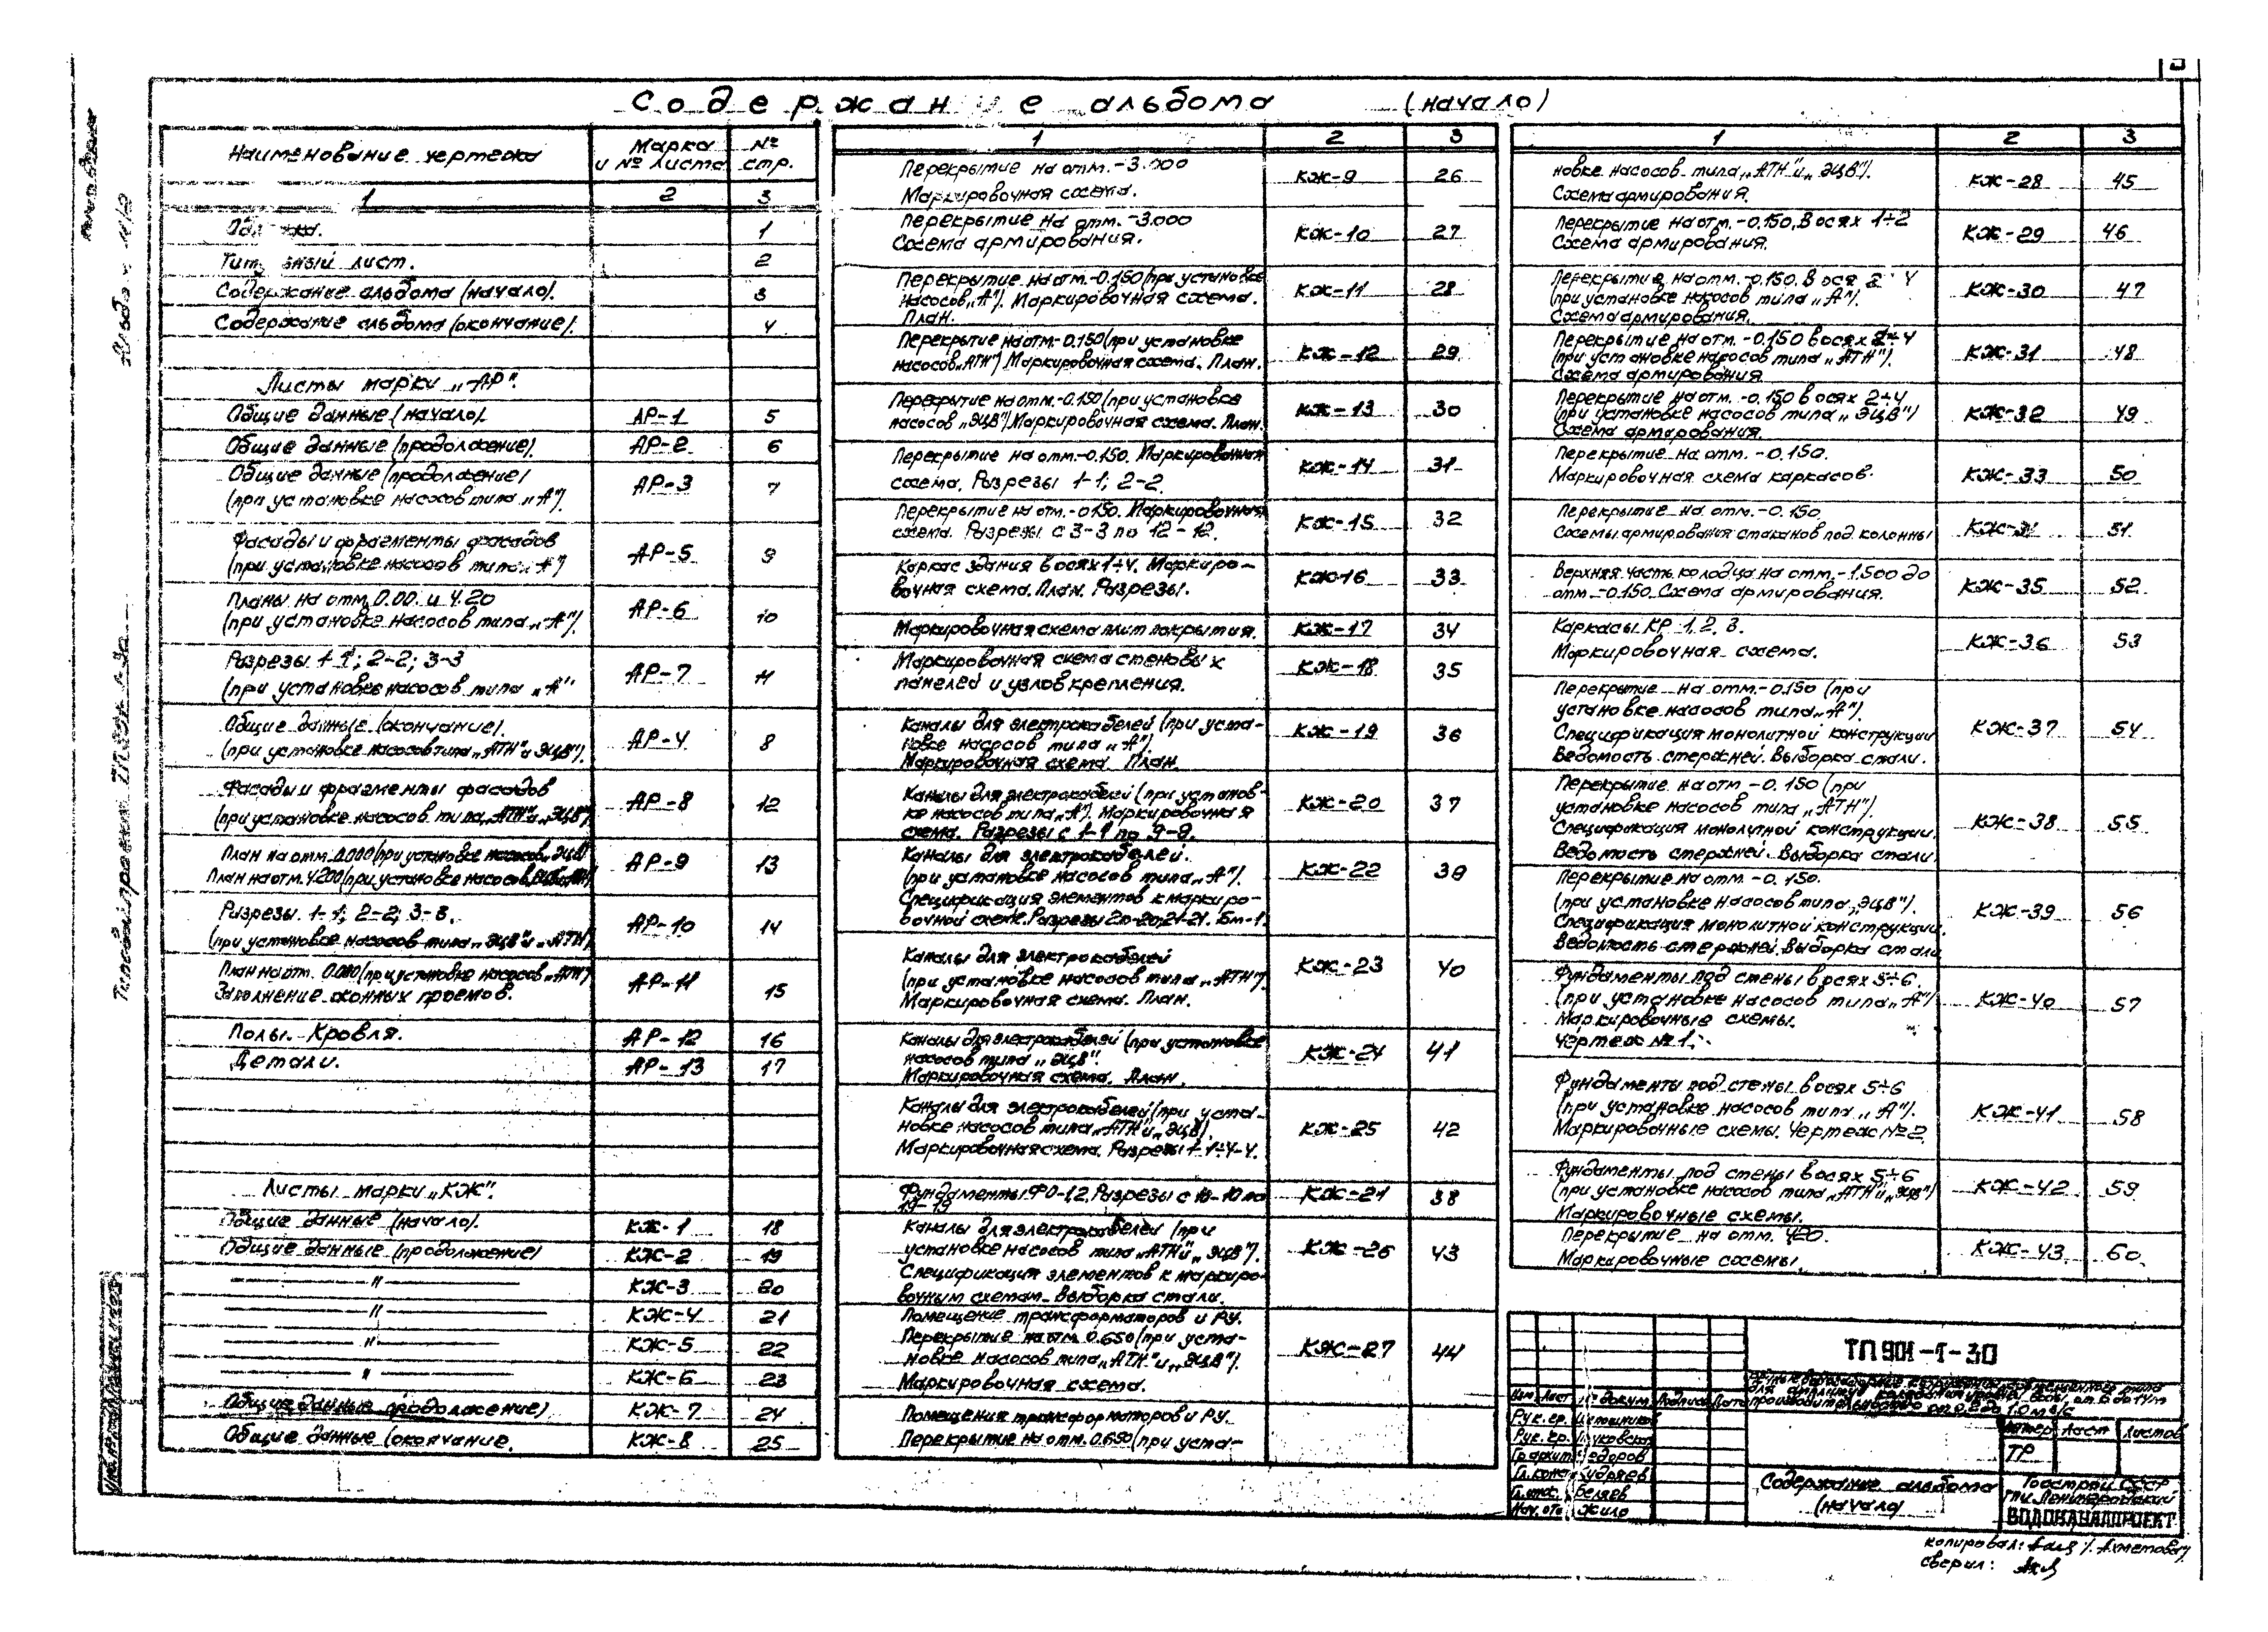 Содержание альбома (начало)
Наименование чертежа
Марка и № листа
№ стр.
1 2 3
1
Титульный лист. 2
Содержание альбома (начало). 3
Содержание альбома (окончание). 4
Листы марки „АР".
Общие данные (начало). АР-1 5
Общие данные (продолжение). АР-2 6
Общие данные (продолжение)
(при установке насосов типа „А"). АР-3 7
Фасады и фрагменты фасадов
(при установке насосов типа „А") АР-5 9
Планы на отм. 0.00. и 4.20
(при установке насосов типа „А"). АР-6 10
Разрезы 1-1; 2-2; 3-3
(при установке насосов типа „А" АР-7 11
Общие данные (окончание).
(при установке насосов типа „АТН" и ЭЦВ"). АР-4 8
Фасады и фрагменты фасадов
(при установке насосов типа „АТН" и „ЭЦВ") АР-8 12
План на отм. 0.000 (при установке насосов „ЭЦВ"
План на отм. 4.200 (при установке насосов АР-9 13
Разрезы. 1-1; 2-2; 3-3.
(при установке насосов типа „ЭЦВ" и „АТН") АР-10 14
План на отм. 0.000 (при установке насосов „АТН")
Заполнение оконных проемов. АР-11 15
Полы. Кровля. АР-12 16
Детали. АР-13 17
Листы марки „КЖ".
Общие данные (начало). КЖ-1 18
Общие данные (продолжение) КЖ-2 19
— " — КЖ-3 20
— " — КЖ-4 21
— " — КЖ-5 22
— " — КЖ-6 23
Общие данные продолжение) КЖ-7 24
Общие данные (окончание. КЖ-8 25
1 2 3
Перекрытие на отм. -3.000
Маркировочная схема. КЖ-9 26
Перекрытие на отм. -3.000
Схема армирования. КЖ-10 27
Перекрытие на отм. -0.150 (при установке
насосов „А"). Маркировочная схема.
План. КЖ-11 28
Перекрытие на отм. -0.150 (при установке
насосов „АТН") Маркировочная схема. План. КЖ-12 29
Перекрытие на отм. -0.150 (при установке
насосов „ЭЦВ") Маркировочная схема. План. КЖ-13 30
Перекрытие на отм. -0.150. Маркировочная
схема. Разрезы 1-1; 2-2. КЖ-14 31
Перекрытие на отм. -0.150. Маркировочная
схема. Разрезы с 3-3 по 12-12. КЖ-15 32
Каркас здания в осях 1÷4. Маркиро-
вочная схема. План. Разрезы. КЖ-16 33
Маркировочная схема плит покрытия. КЖ-17 34
Маркировочная схема стеновых
панелей и узлов крепления. КЖ-18 35
Каналы для электрокабелей (при уста-
новке насосов типа „А").
Маркировочная схема. План. КЖ-19 36
Каналы для электрокабелей (при установ-
ке насосов типа „А"). Маркировочная
схема. Разрезы с 1-1 по 9-9. КЖ-20 37
Каналы для электрокабелей.
(при установке насосов типа „А").
Спецификация элементов к маркиро-
вочной схеме. Разрезы 20-20; 21-21. Бм-1. КЖ-22 39
Каналы для электрокабелей
(при установке насосов типа „АТН").
Маркировочная схема. План. КЖ-23 40
Каналы для электрокабелей (при установке
насосов типа „ЭЦВ".
Маркировочная схема. План. КЖ-24 41
Каналы для электрокабелей (при уста-
новке насосов типа „АТН" и „ЭЦВ)
Маркировочная схема. Разрезы 1-1÷4-4. КЖ-25 42
Фундаменты ФО-1,2. Разрезы с 10-10 по
19-19 КЖ-21 38
Каналы для электрокабелей (при
установке насосов типа „АТН" и „ЭЦВ").
Спецификация элементов к маркиро-
вочным схемам. Выборка стали. КЖ-26 43
Помещение трансформаторов и РУ.
Перекрытие на отм. 0.650 (при уста-
новке насосов типа „АТН" и „ЭЦВ").
Маркировочная схема. КЖ-27 44
Помещения трансформаторов и РУ.
Перекрытие на отм. 0.650 (при уста-
1 2 3
новке насосов типа „АТН" и „ЭЦВ").
Схема армирования. КЖ-28 45
Перекрытие на отм. -0.150. В осях 1÷2
Схема армирования. КЖ-29 46
Перекрытие на отм. -0.150. В ося 2 4
(при установке насосов типа „А").
Схема армирования. КЖ-30 47
Перекрытие на отм. -0.150 в осях 2÷4
(при установке насосов типа „АТН").
Схема армирования. КЖ-31 48
Перекрытие на отм. -0.150 в осях 2÷4
(при установке насосов типа „ЭЦВ")
Схема армирования. КЖ-32 49
Перекрытие на отм. -0.150.
Маркировочная схема каркасов. КЖ-33 50
Перекрытие на отм. -0.150
Схемы армирования стаканов под колонны КЖ-34 51
Верхняя часть колодца на отм. -1.500 до
отм. -0.150. Схема армирования. КЖ-35 52
Каркасы КР 1, 2, 3.
Маркировочная схема. КЖ-36 53
Перекрытие на отм. -0.150 (при
установке насосов типа „А").
Спецификация монолитной конструкции
Ведомость стержней. Выборка стали. КЖ-37 54
Перекрытие на отм. -0.150 (при
установке насосов типа „АТН")
Спецификация монолитной конструкции.
Ведомость стержней. Выборка стали. КЖ-38 55
Перекрытие на отм. -0.150.
(при установке насосов типа „ЭЦВ").
Спецификация монолитной конструкции.
Ведомость стержней. Выборка стали КЖ-39 56
Фундаменты под стены в осях 5÷6.
(при установке насосов типа „А")
Маркировочные схемы.
Чертеж №1. КЖ-40 57
Фундаменты под стены в осях 5÷6
(при установке насосов типа „А").
Маркировочные схемы. Чертеж №2 КЖ-41 58
Фундаменты под стены в осях 5÷6
(при установке насосов типа „АТН" и „ЭЦВ")
Маркировочные схемы. КЖ-42 59
Перекрытие на отм. 4.20.
Маркировочные схемы. КЖ-43 60
ТП 901-1-30
для амплитуд колебания уровня воды от 6 до
производительностью от
Изм Лист № докум Подпись Дата
Рук. гр.
Рук. гр.
Гл. констр.
Беляев
Нач. отд Жило
Литер Лист Листов
ТР
Содержание альбома
(начало)
Госстрой СССР
ГПИ Ленинградский
ВОДОКАНАЛПРОЕКТ
копировал: Ахметова
сверил:
Типовой проект
Альбом